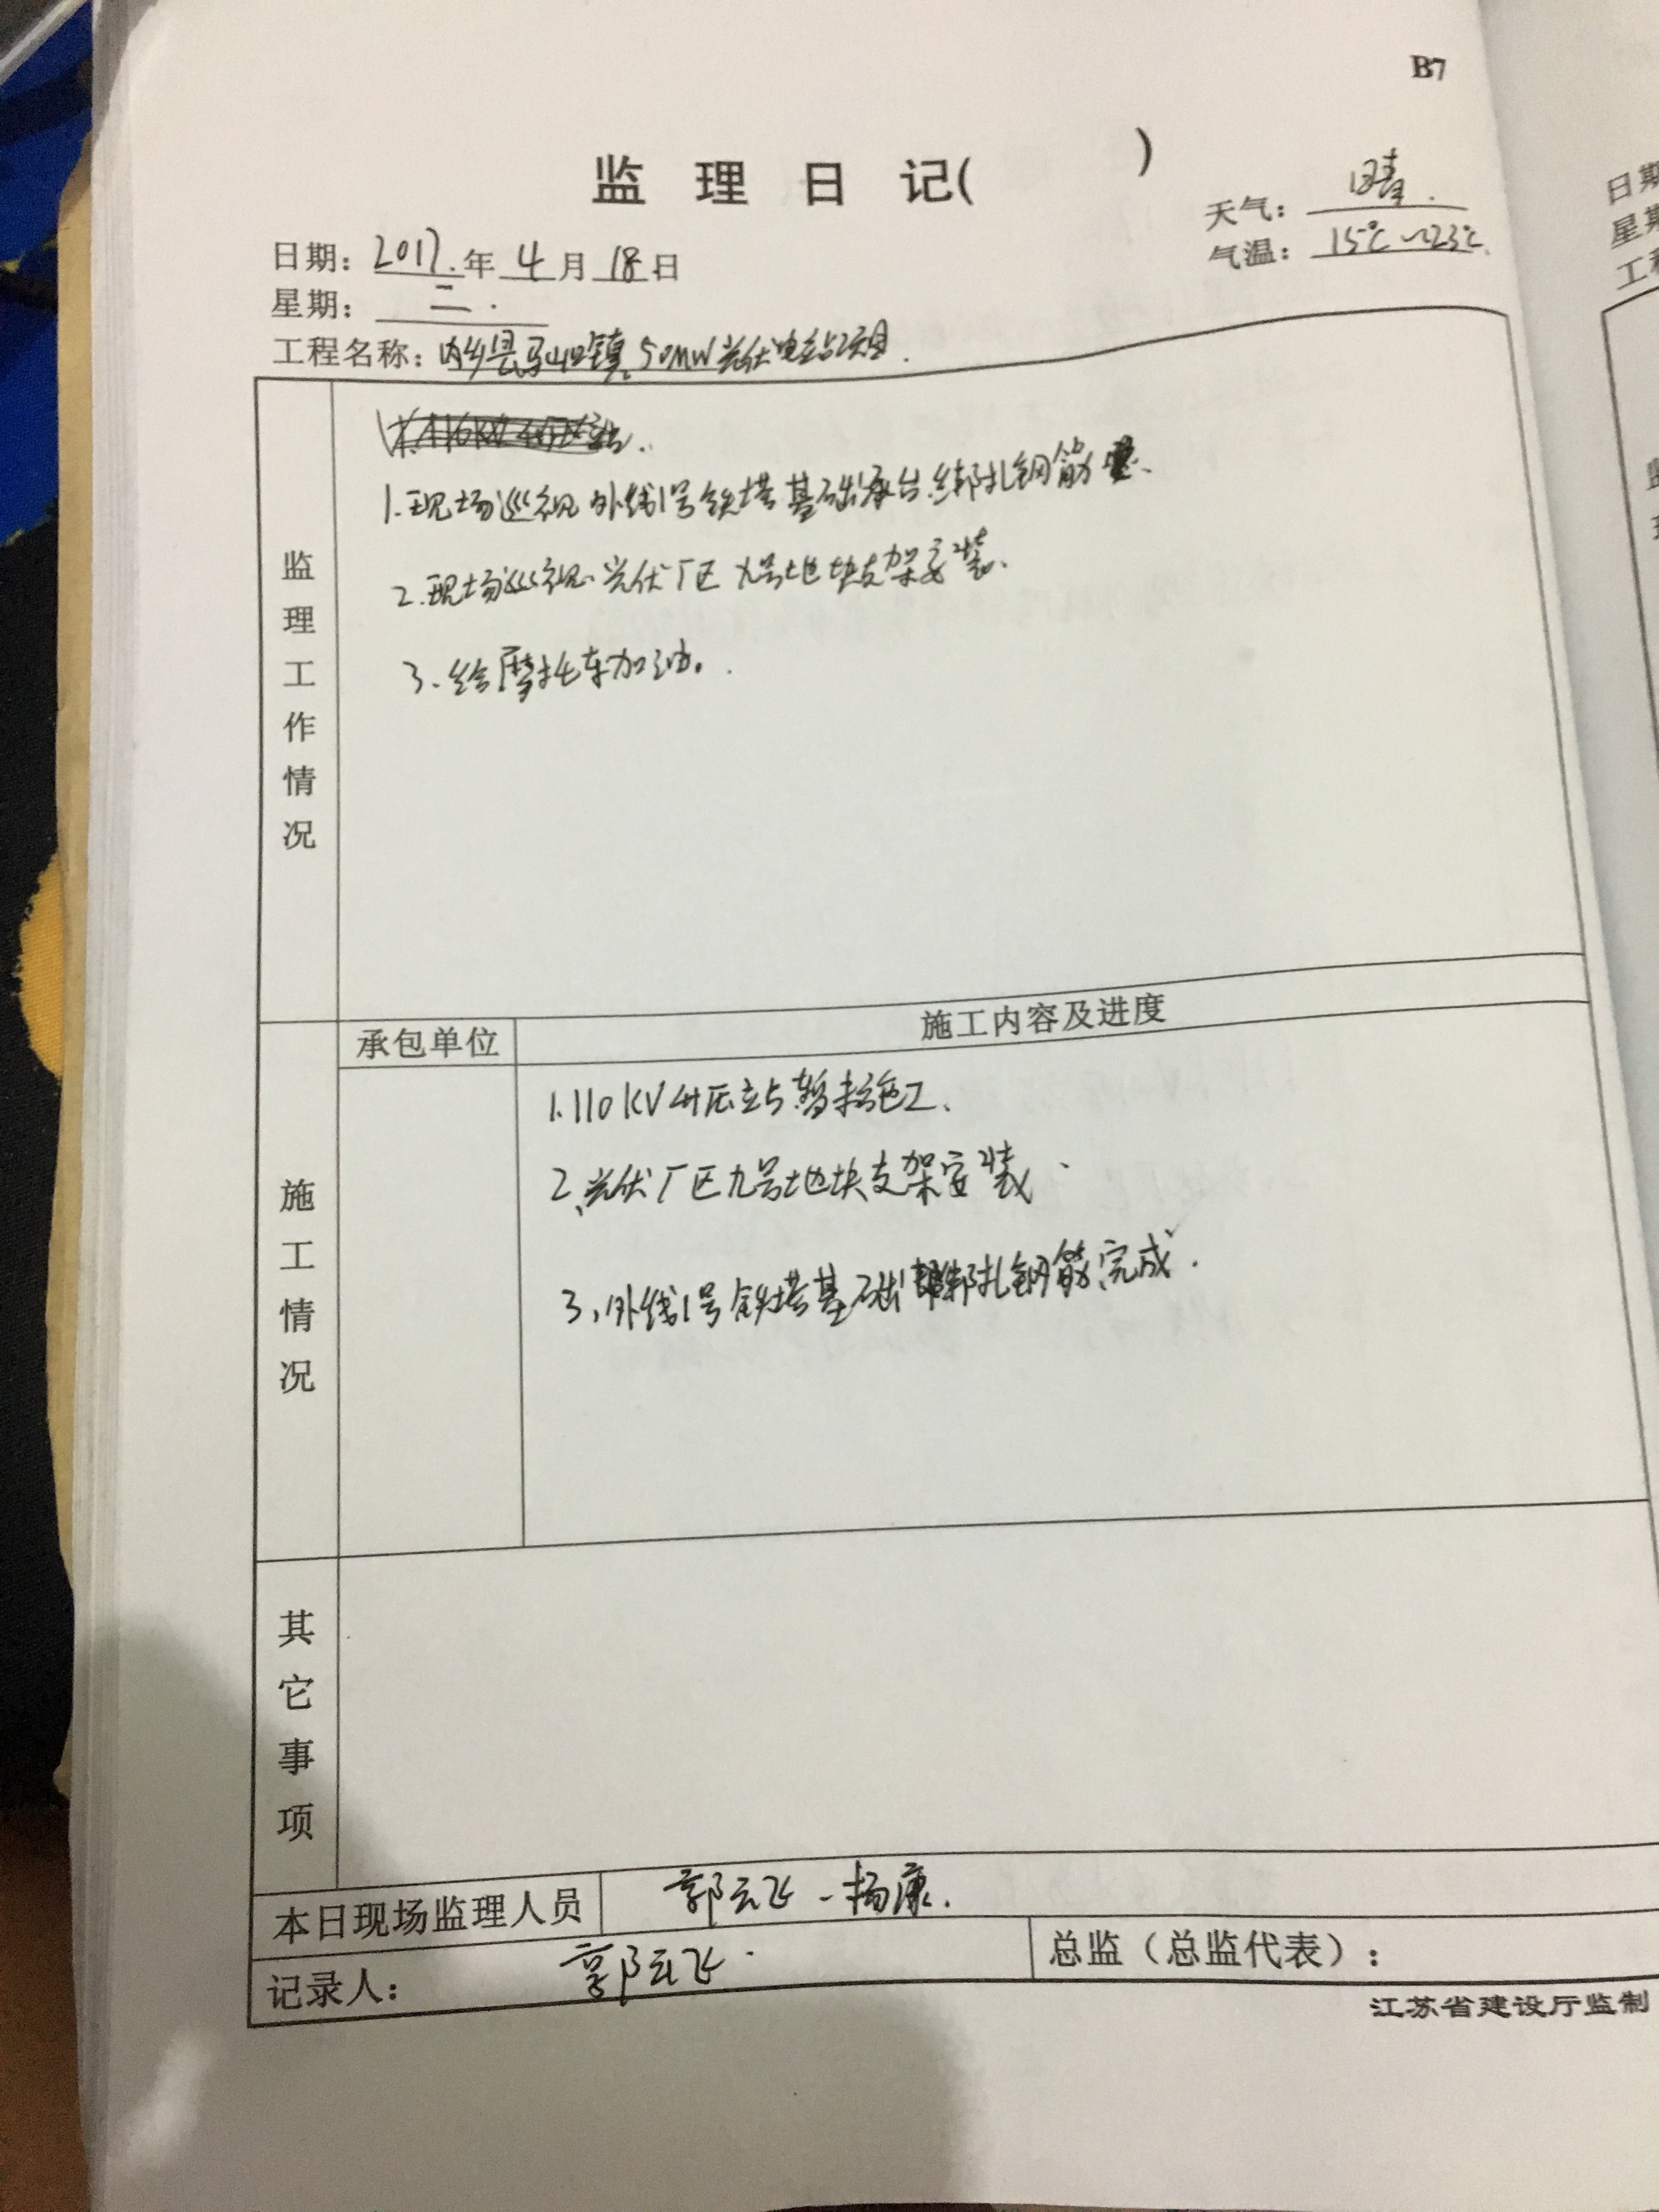 B7
监 理 日 记( )
天气：晴.
日期：2017.年4月18日
气温：15℃～23℃
星期：二.
工程名称：内乡县马山口镇50MW光伏电站项目.
1.现场巡视外线1号铁塔基础承台绑扎钢筋
2.现场巡视、光伏厂区九号地块支架安装.
3、给摩托车加油。
监理工作情况
承包单位 施工内容及进度
1.110KV升压站暂未施工.
2、光伏厂区九号地块支架安装.
3、外线1号铁塔基础绑扎钢筋完成.
施工情况
其它事项
本日现场监理人员 郭云飞 杨康.
记录人：郭云飞. 总监（总监代表）：
江苏省建设厅监制
日期
星期